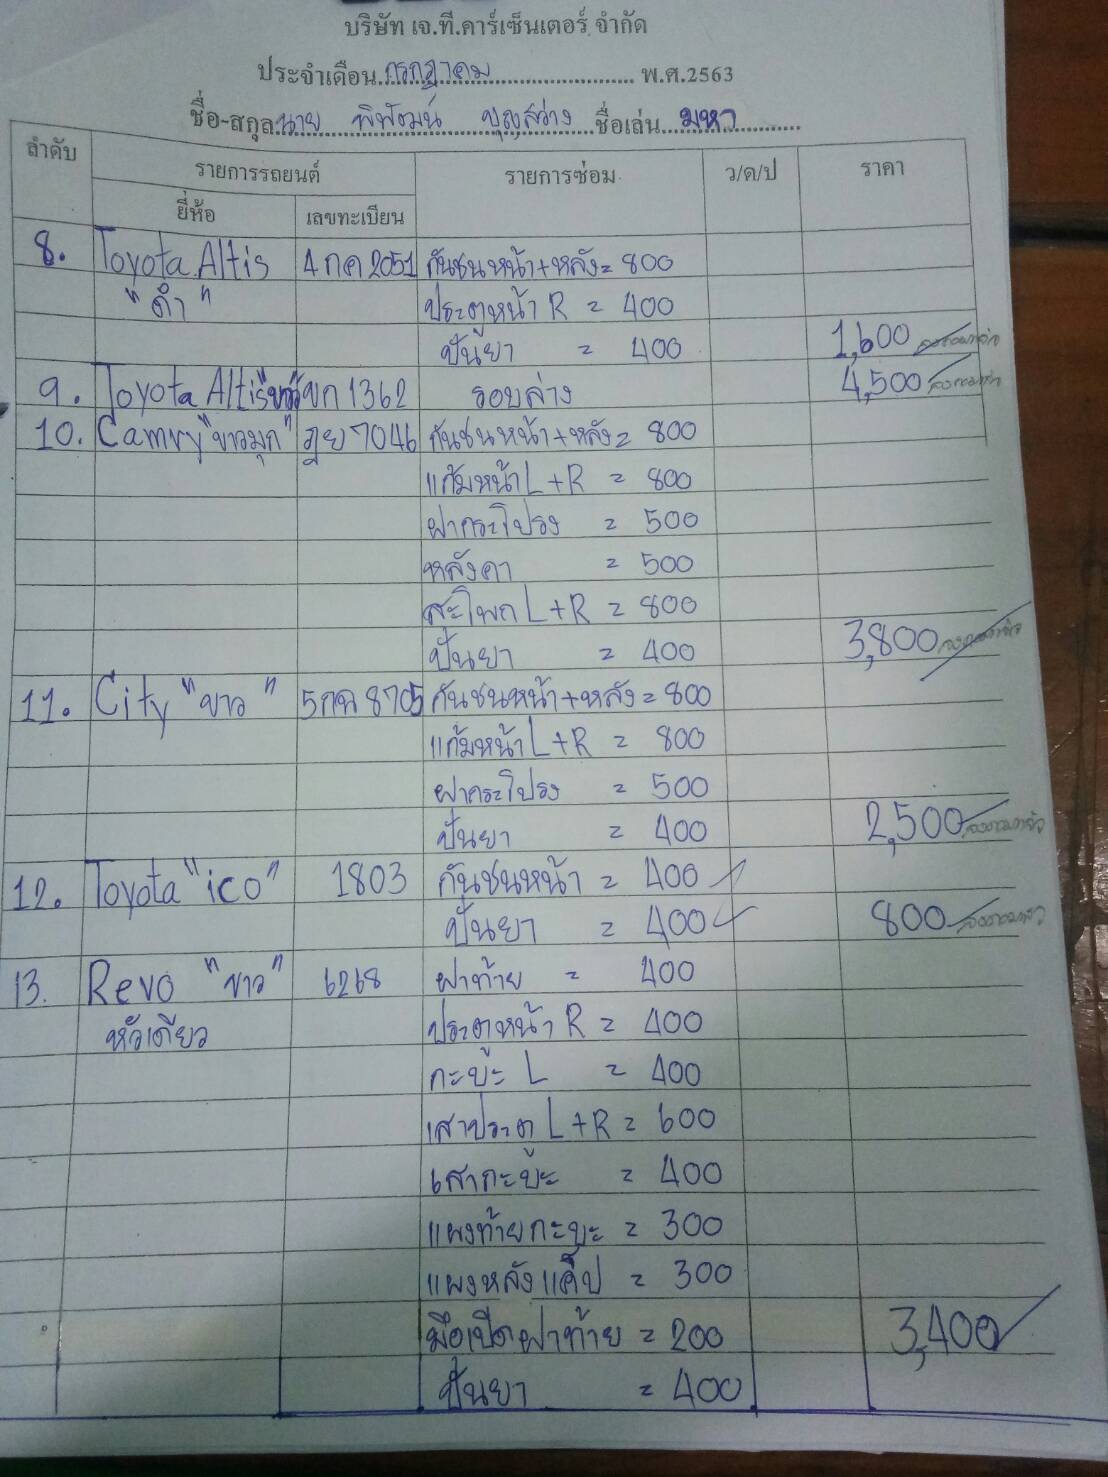 บริษัท เจ.ที.คาร์เซ็นเตอร์ จำกัด
ประจำเดือน กรกฎาคม พ.ศ.2563
ชื่อ-สกุล นาย พิพัฒน์ บุญสว่าง ชื่อเล่น มหา
ลำดับ รายการรถยนต์ รายการซ่อม ว/ด/ป ราคา
ยี่ห้อ เลขทะเบียน
8. Toyota Altis 4 กค 2051 กันชนหน้า+หลัง = 800
"ดำ" ประตูหน้า R = 400
ปั่นยา = 400 1,600
9. Toyota Altis "ขาว" ขก 1362 รอบล่าง 4,500
10. Camry "ขาวมุก" ฎย 7046 กันชนหน้า+หลัง = 800
แก้มหน้า L+R = 800
ฝากระโปรง = 500
หลังคา = 500
สะโพก L+R = 800
ปั่นยา = 400 3,800
11. City "ขาว" 5กฌ 8705 กันชนหน้า+หลัง = 800
แก้มหน้า L+R = 800
ฝากระโปรง = 500
ปั่นยา = 400 2,500
12. Toyota "ico" 1803 กันชนหน้า = 400
ปั่นยา = 400 800
13. Revo "ขาว" 6268 ฝาท้าย = 400
หัวเดียว ประตูหน้า R = 400
กะบะ L = 400
เสาประตู L+R = 600
เสากะบะ = 400
แผงท้ายกะบะ = 300
แผงหลังแค็ป = 300
มือเปิดฝาท้าย = 200 3,400
ปั่นยา = 400